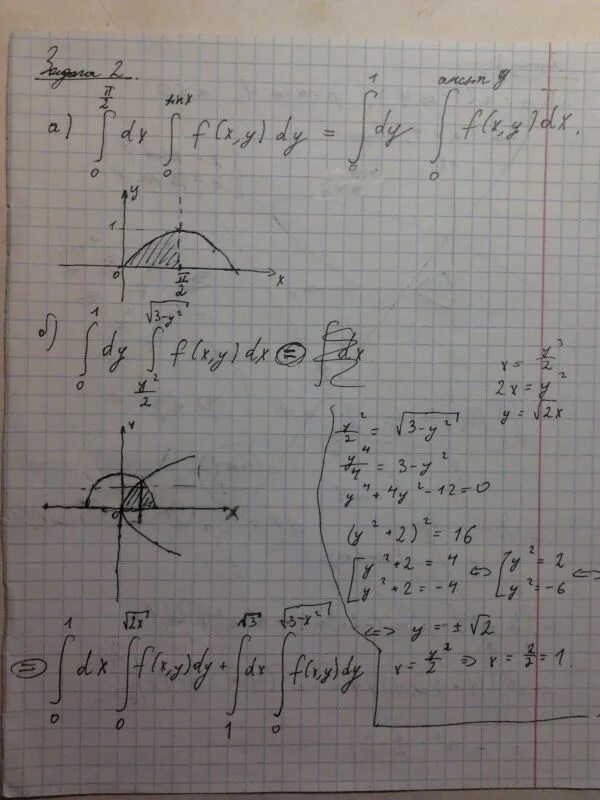 Задача 2.
а) ∫₀^{π/2} dx ∫₀^{sin x} f(x,y) dy = ∫₀^1 dy ∫₀^{arcsin y} f(x,y) dx.
y
1
0 π/2 x
б) ∫₀^1 dy ∫_{y²/2}^{√(3-y²)} f(x,y) dx ⊜
x = y²/2
2x = y²
y = √(2x)
y
0 x
y²/2 = √(3-y²)
y⁴/4 = 3-y²
y⁴+4y²-12=0
(y²+2)² = 16
[ y²+2 = 4 ; y²+2 = -4 ⇔ [ y² = 2 ; y² = -6 ⇔
⇔ y = ±√2
x = y²/2 ⇒ x = 2/2 = 1.
⊜ ∫₀^1 dx ∫₀^{√(2x)} f(x,y) dy + ∫₁^{√3} dx ∫₀^{√(3-x²)} f(x,y) dy